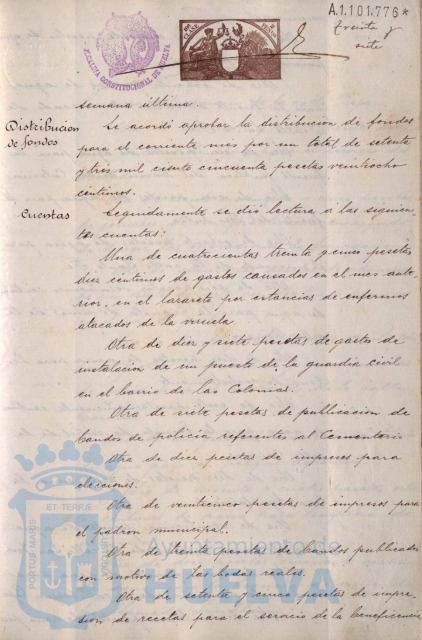 A.1.101.776*
treinta y
siete
ALCALDIA CONSTITUCIONAL DE HUELVA
semana última.
Distribucion
de fondos
Se acordó aprobar la distribucion de fondos
para el corriente mes por un total de setenta
y tres mil ciento cincuenta pesetas veintiocho
centimos.
Cuentas
Seguidamente se dió lectura á las siguien-
tes cuentas:
Una de cuatrocientas treinta y cinco pesetas
diez céntimos de gastos causados en el mes ante-
rior, en el lazareto por estancias de enfermos
atacados de la viruela.
Otra de diez y siete pesetas de gastos de
instalacion de un puesto de la guardia civil
en el barrio de las Colonias.
Otra de siete pesetas de publicacion de
bandos de policía referentes al Cementerio
Otra de diez pesetas de impresos para
elecciones.
Otra de veinticinco pesetas de impresos para
el padron municipal.
Otra de treinta pesetas de bandos publicados
con motivo de las bodas reales.
Otra de setenta y cinco pesetas de impre-
sion de recetas para el servicio de la beneficencia
PORTUS MARIS ET TERRÆ
Ayuntamiento de
HUELVA